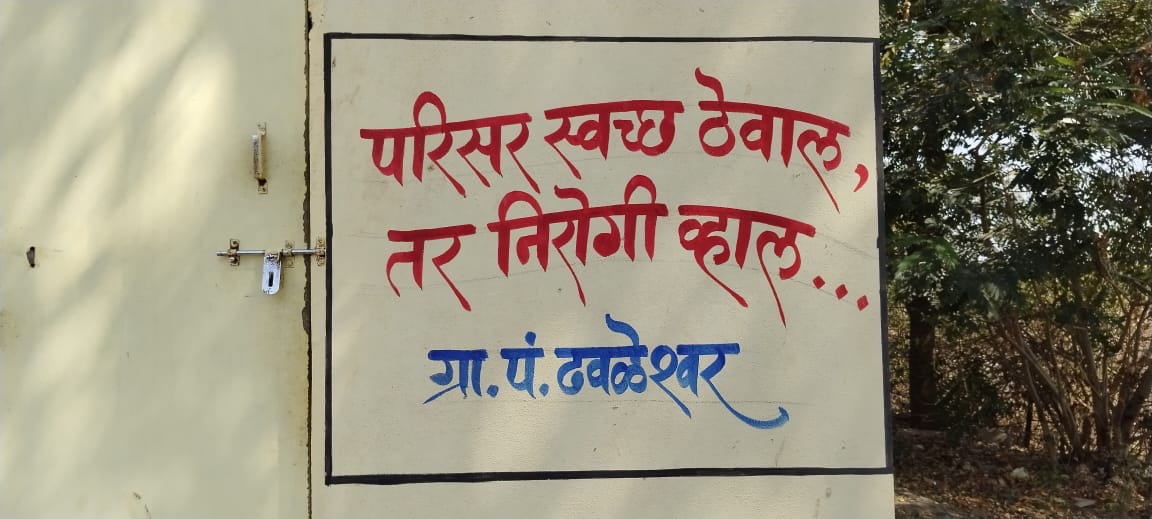 परिसर स्वच्छ ठेवाल,
तर निरोगी व्हाल...
ग्रा. पं. ढवळेश्वर